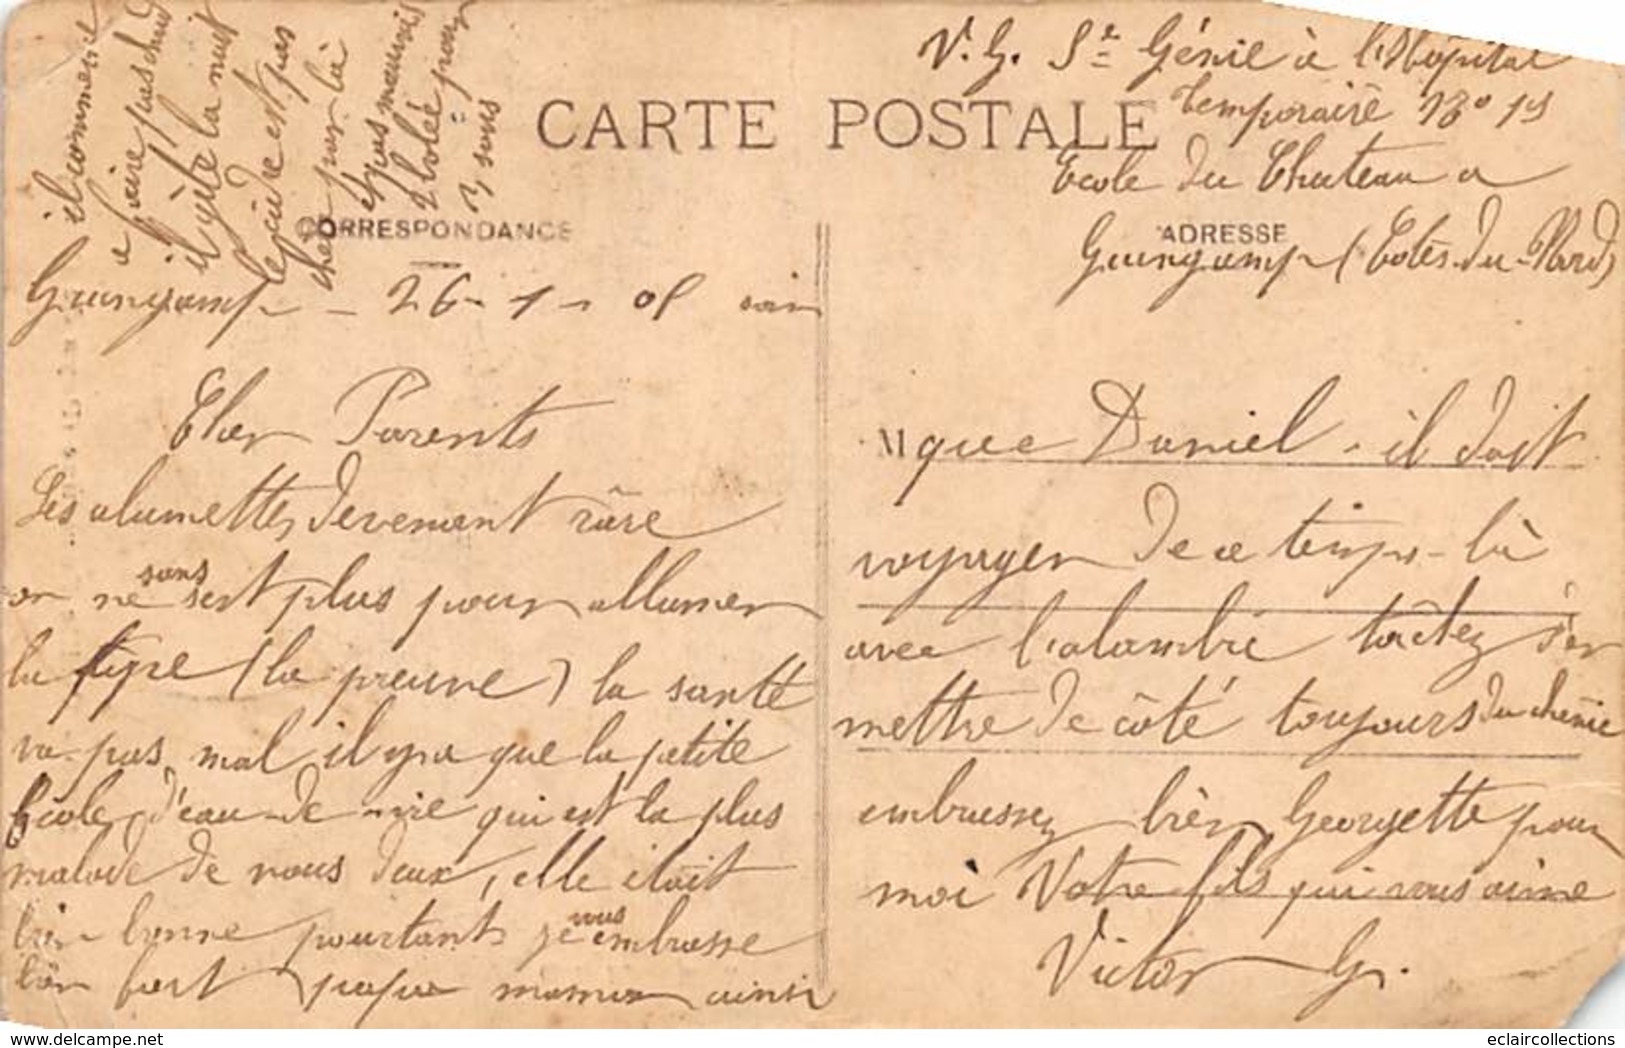 il commence
a faire pas chaud
il gèle la nuit
le cidre est pas
cher par là
et pas mauvais
bolée pour
3 sous
V. G. St Génie à l'Hopital
temporaire 19
CARTE POSTALE
Ecole du Chateau a
CORRESPONDANCE
ADRESSE
Guingamp (Cotes-du-Nord)
Guingamp - 26 - 1 - soir
Cher Parents
Les alumettes devennent râre
on ne sans sert plus pour allumer
la pipe (la preuve) la santé
va pas mal il y a que la petite
d'eau de vie qui est la plus
malade de nous deux, elle était
bien bonne pourtant je vous embrasse
bien fort papa maman ainsi
M que Daniel - il doit
voyager de ce temps-là
avec l'alambic tachez d'en
mettre de côté toujours du
embrassez bien Georgette pour
moi Votre fils qui vous aime
Victor G.
eclaircollections